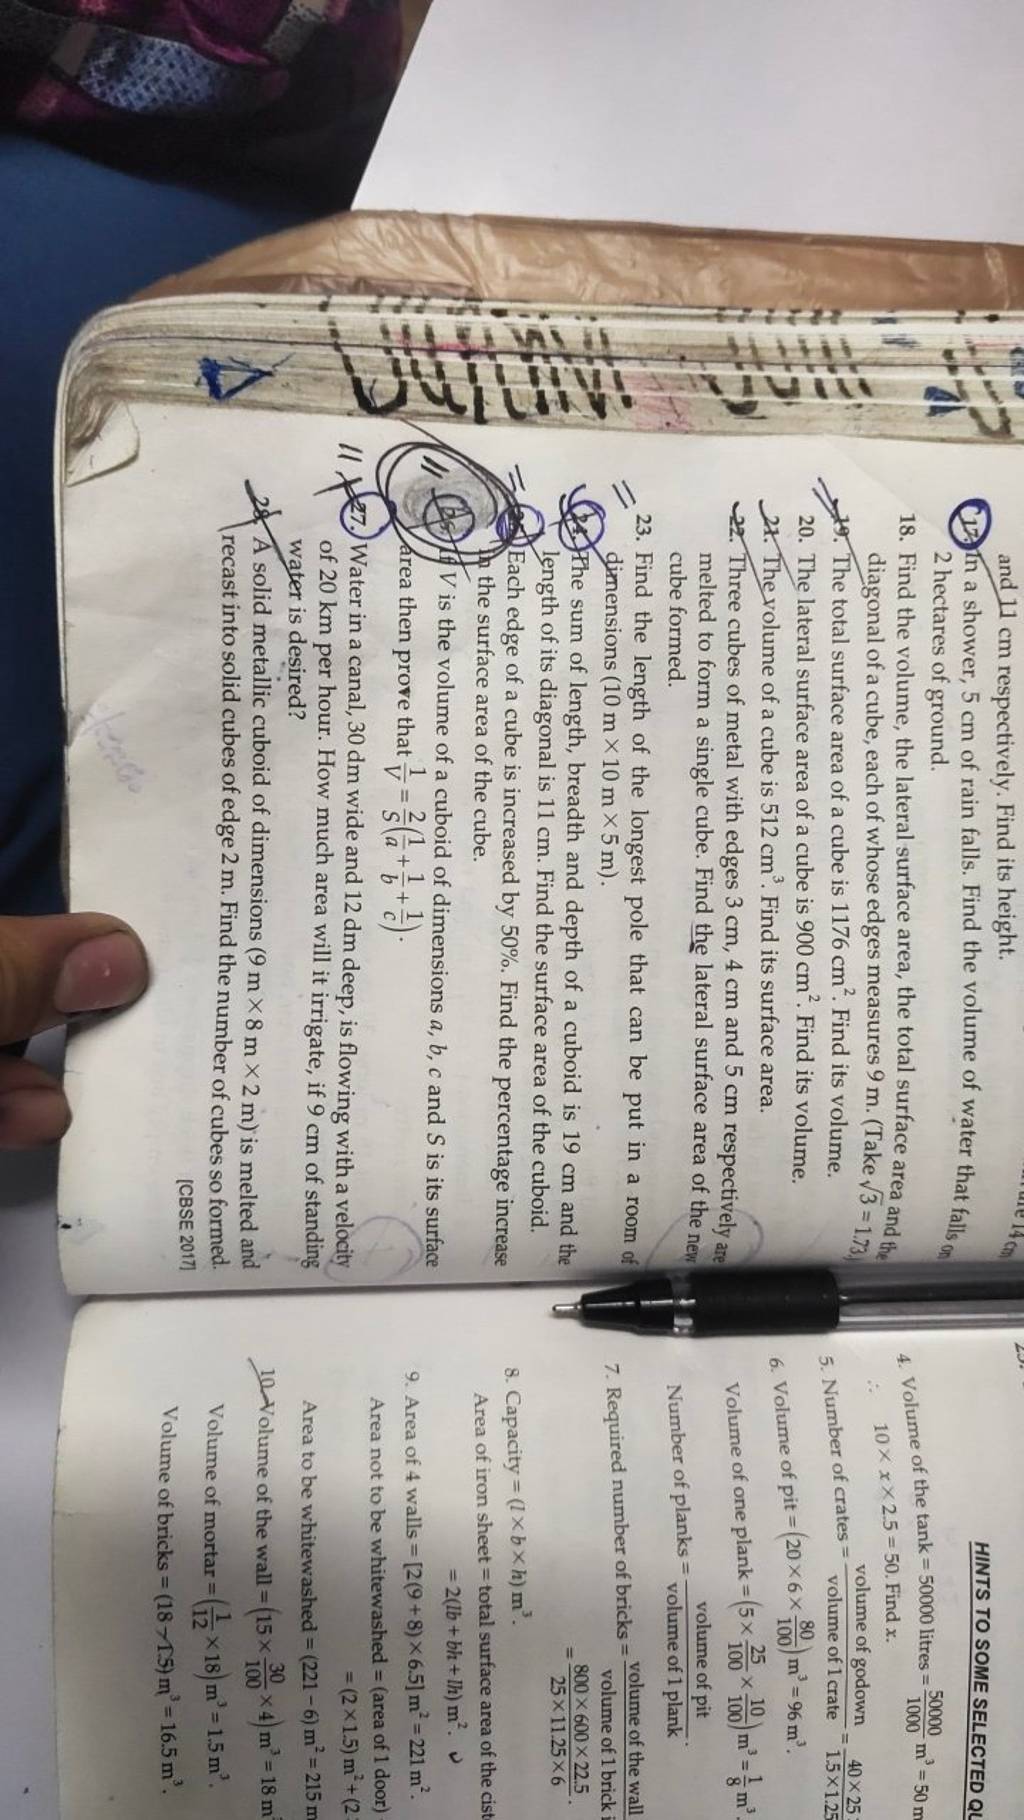 and 11 cm respectively. Find its height.
17. In a shower, 5 cm of rain falls. Find the volume of water that falls on
2 hectares of ground.
18. Find the volume, the lateral surface area, the total surface area and the
diagonal of a cube, each of whose edges measures 9 m. (Take √3 = 1.73)
19. The total surface area of a cube is 1176 cm². Find its volume.
20. The lateral surface area of a cube is 900 cm². Find its volume.
21. The volume of a cube is 512 cm³. Find its surface area.
22. Three cubes of metal with edges 3 cm, 4 cm and 5 cm respectively are
melted to form a single cube. Find the lateral surface area of the new
cube formed.
23. Find the length of the longest pole that can be put in a room of
dimensions (10 m × 10 m × 5 m).
24. The sum of length, breadth and depth of a cuboid is 19 cm and the
length of its diagonal is 11 cm. Find the surface area of the cuboid.
Each edge of a cube is increased by 50%. Find the percentage increase
in the surface area of the cube.
If V is the volume of a cuboid of dimensions a, b, c and S is its surface
area then prove that 1/V = 2/S (1/a + 1/b + 1/c).
27. Water in a canal, 30 dm wide and 12 dm deep, is flowing with a velocity
of 20 km per hour. How much area will it irrigate, if 9 cm of standing
water is desired?
28. A solid metallic cuboid of dimensions (9 m × 8 m × 2 m) is melted and
recast into solid cubes of edge 2 m. Find the number of cubes so formed.
[CBSE 2017]
HINTS TO SOME SELECTED
4. Volume of the tank = 50000 litres = 50000/1000 m³ = 50 m
∴ 10 × x × 2.5 = 50. Find x.
5. Number of crates = volume of godown/volume of 1 crate = 40×25/1.5×1.25
6. Volume of pit = (20 × 6 × 80/100) m³ = 96 m³.
Volume of one plank = (5 × 25/100 × 10/100) m³ = 1/8 m³.
Number of planks = volume of pit/volume of 1 plank.
7. Required number of bricks = volume of the wall/volume of 1 brick
= 800 × 600 × 22.5/25 × 11.25 × 6.
8. Capacity = (l × b × h) m³.
Area of iron sheet = total surface area of the cist
= 2(lb + bh + lh) m².
9. Area of 4 walls = [2(9 + 8) × 6.5] m² = 221 m².
Area not to be whitewashed = (area of 1 door)
= (2 × 1.5) m² + (2
Area to be whitewashed = (221 − 6) m² = 215 m
10. Volume of the wall = (15 × 30/100 × 4) m³ = 18 m
Volume of mortar = (1/12 × 18) m³ = 1.5 m³.
Volume of bricks = (18 − 1.5) m³ = 16.5 m³.